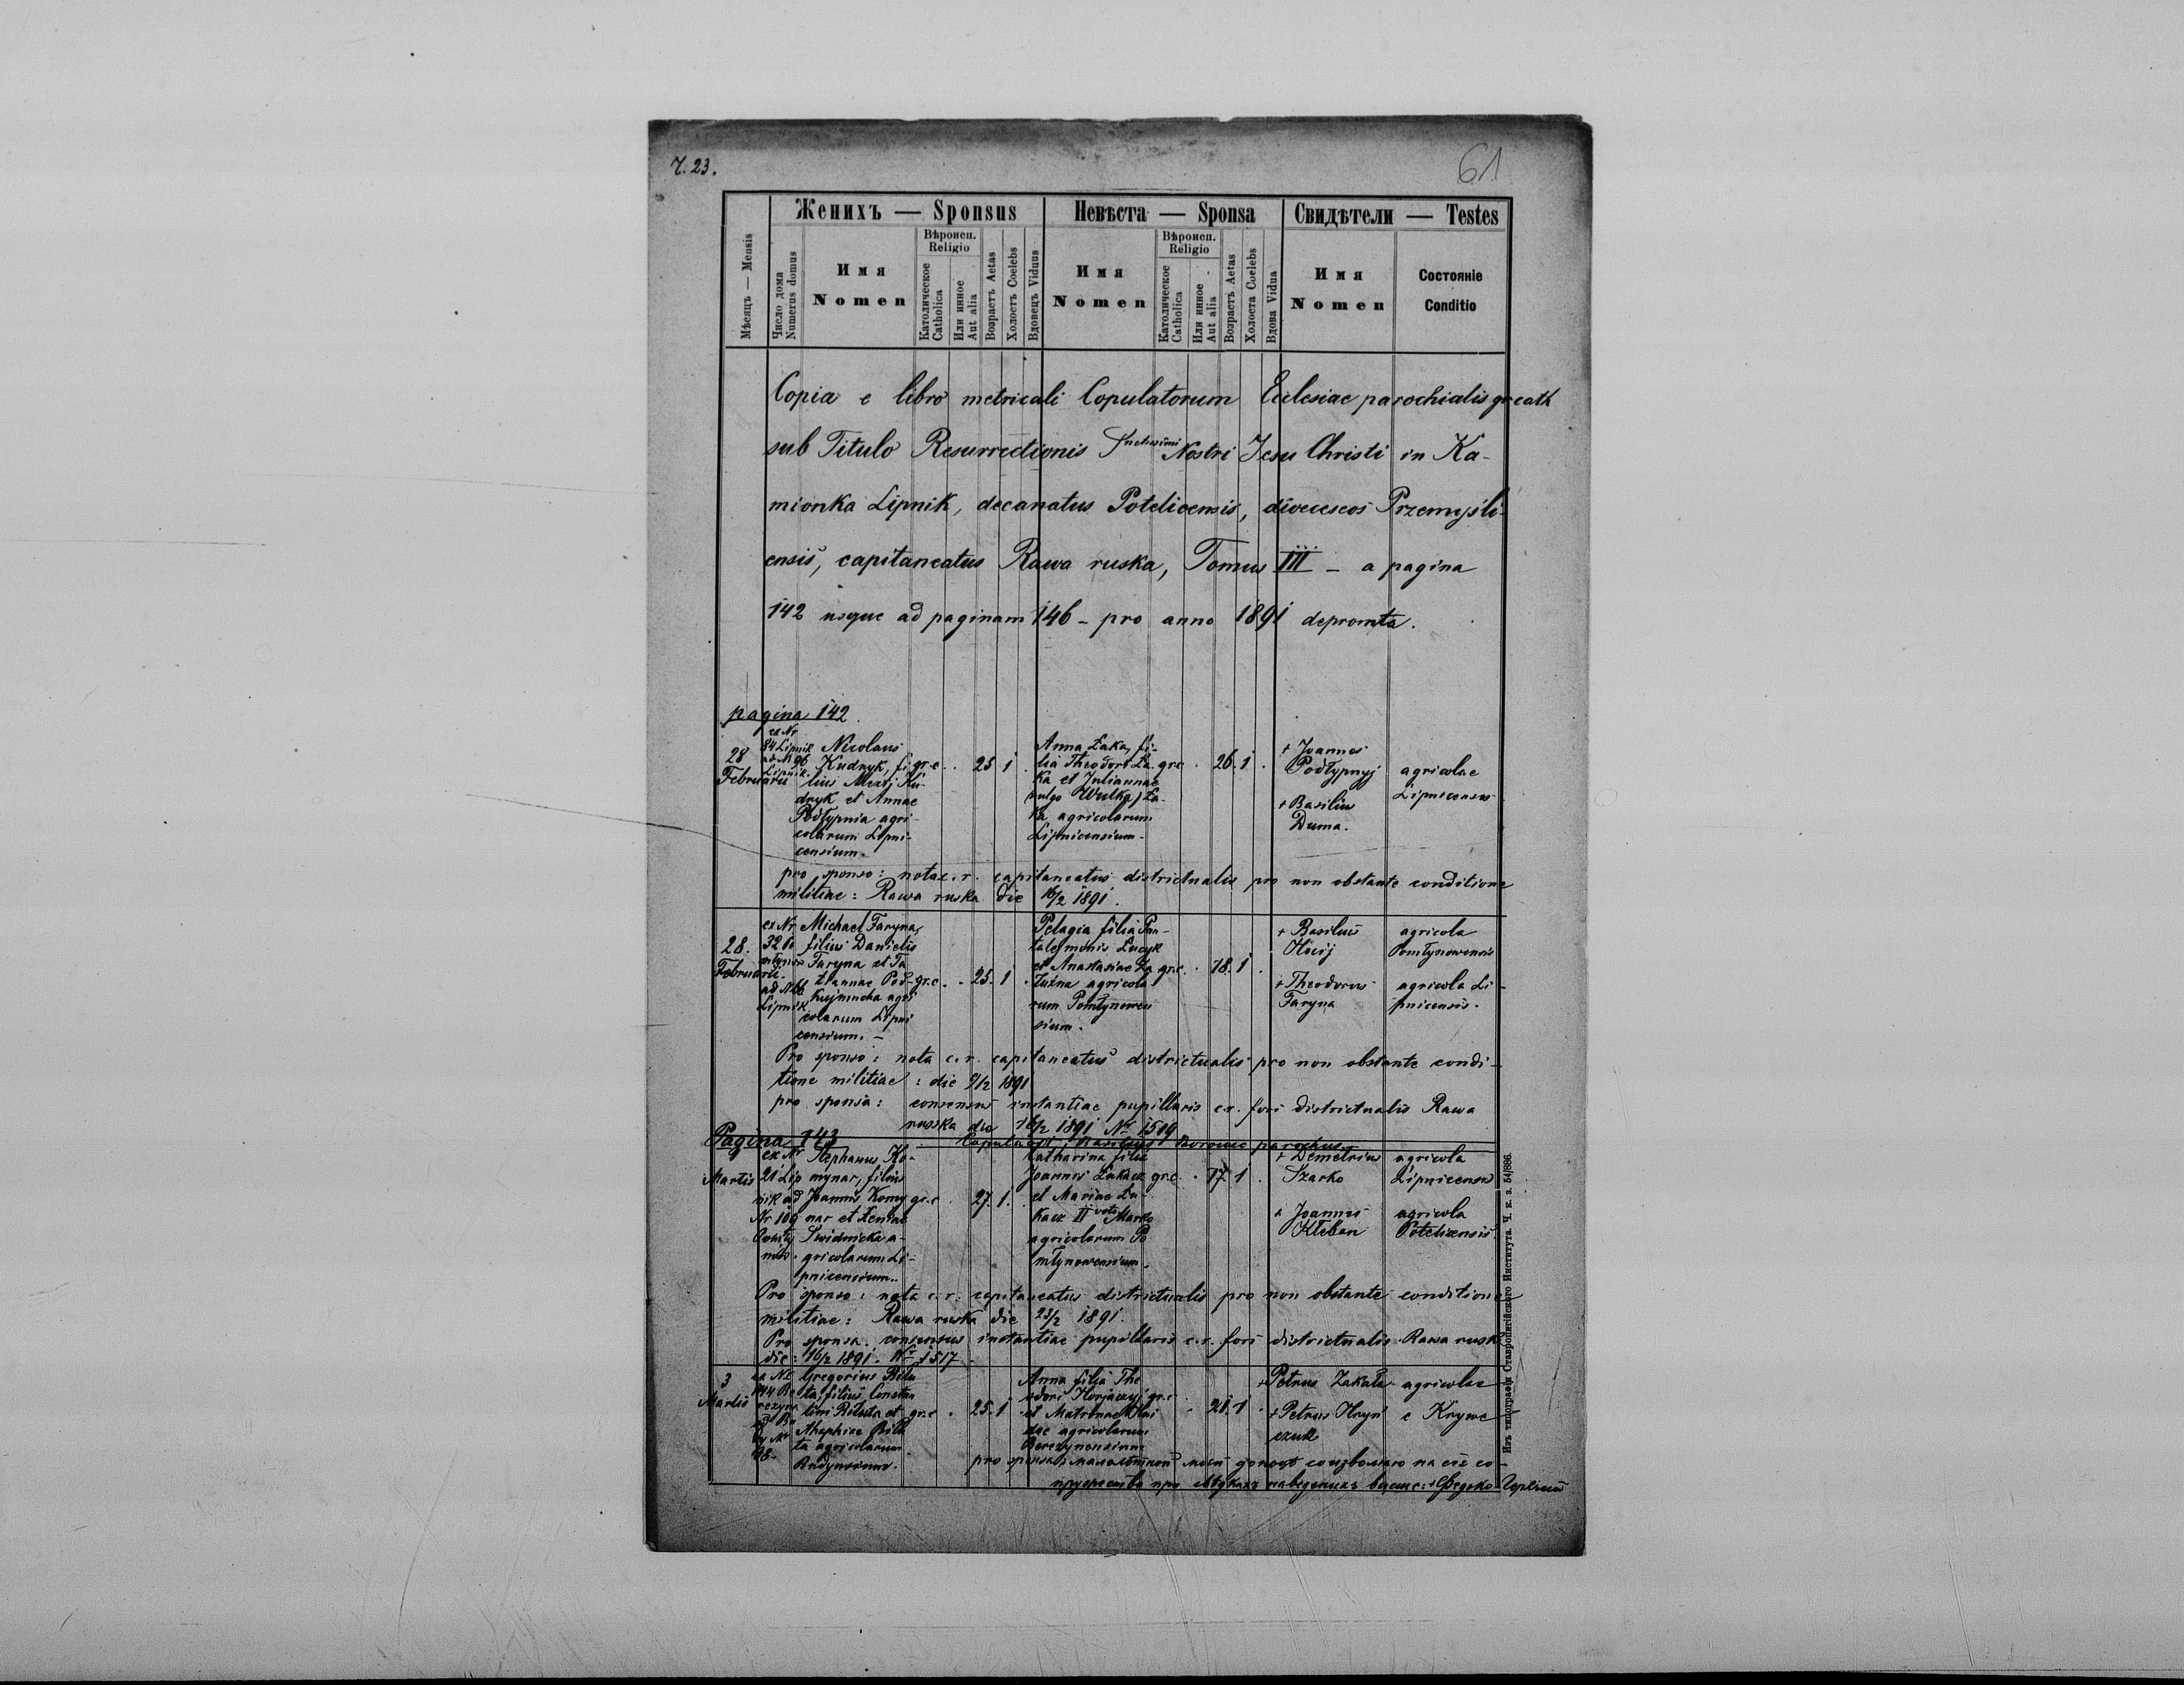 Ч. 23.
61
Женихъ — Sponsus
Невѣста — Sponsa
Свидѣтели — Testes
Мѣсяцъ — Mensis
Число дома
Numerus domus
Имя
Nomen
Вѣроисп.
Religio
Католическое
Catholica
Или инное
Aut alia
Возрастъ Aetas
Холостъ Coelebs
Вдовецъ Viduus
Имя
Nomen
Вѣроисп.
Religio
Католическое
Catholica
Или инное
Aut alia
Возрастъ Aetas
Холоста Coelebs
Вдова Vidua
Имя
Nomen
Состояніе
Conditio
Copia e libro metricali Copulatorum Ecclesiae parochialis gr cath
sub Titulo Resurrectionis Nostri Jesu Christi in Ka-
mionka Lipnik, decanatus Potelicensis, dioeceseos Przemyśli-
ensis, capitaneatus Rawa ruska, Tomus III — a pagina
142 usque ad paginam 146 — pro anno 1891 depromta.
pagina 142.
28
Februarii
ex Nr
84 Lipnik
ad N 96
Lipnik.
Nicolaus
Kudryk, fi-
lius Alexij Ku-
dryk et Annae
Podłypnia agri-
colarum Lipni-
censium.
gr.c. . 25 1 .
Anna Łaka, fi-
lia Theodori Ła-
ka et Juliannae
vulgo Wulka, Ła-
ka agricolarum
Lipnicensium.
gr.c . 26. 1 .
+ Joannes
Podłypnyj
+ Basilius
Duma.
agricolae
Lipnicenses
pro sponso: nota c.r. capitaneatus districtualis pro non obstante conditione
militiae: Rawa ruska die 16/2 1891.
28.
Februarii.
ex Nr
32 Po
młynów
ad N 66
Lipnik
Michael Faryna,
filius Danielis
Faryna et Ta
tiannae Pod-
kujmucha agri
colarum Lipni
censium. —
gr.c . . 25. 1 .
Pelagia filia Pan-
talejmonis Łucyk
et Anastasiae Za
Zuźna agricola
rum Pomłynowen
sium.
gr.c. . 18. 1 .
+ Basilius
Hicij
+ Theodorus
Faryna
agricola
Pomłynowensis
agricola Li-
pnicensis.
Pro sponso: nota c.r. capitaneatus districtualis pro non obstante condi-
tione militiae: die 9/2 1891
pro sponsa: consensus instantiae pupillaris c.r. fori districtualis Rawa
ruska die 16/2 1891 Nr 1519
Pagina 143
Copulavit: Basilius parochus
Martis
ex Nr
21 Lip
nik ad
Nr 109
Stephanus Ko-
mynar, filius
Joannis Komy
nar et Xeniae
Swidnicka a-
gricolarum Li-
pnicensium..
gr.c . 27. 1 .
Catharina filia
Joannis Łakacz
et Mariae Ła-
kacz II voto
agricolarum Po
młynowensium.
gr.c . 17. 1 .
+ Demetrius
Szarko
+ Joannes
Kleban
agricola
Lipnicensis
agricola
Potelicensis.
Pro sponso: nota c.r. capitaneatus districtualis pro non obstante conditione
militiae: Rawa ruska die 23/2 1891.
Pro sponsa. consensus instantiae pupillaris c.r. fori districtualis Rawa ruska
die: 16/2 1891. Nr 1517
3
Martis
ex Nr
144 Be
rezyna
98.
Gregorius Biłu
ta filius Constan
tini Biłuta et
Biłu
ta agricolarum
gr.c . 25. 1
Anna filia The
odori Horjaczyj
et Matronae
agricolarum
Berezynensium
gr.c . 21. 1 .
+ Petrus Zakała
+ Petrus Hryń
czuk
agricolae
e Krywe
наведеныхъ высше: + Федько
Изъ типографіи Ставропигійского Института. Ч. к. а. 54/886.